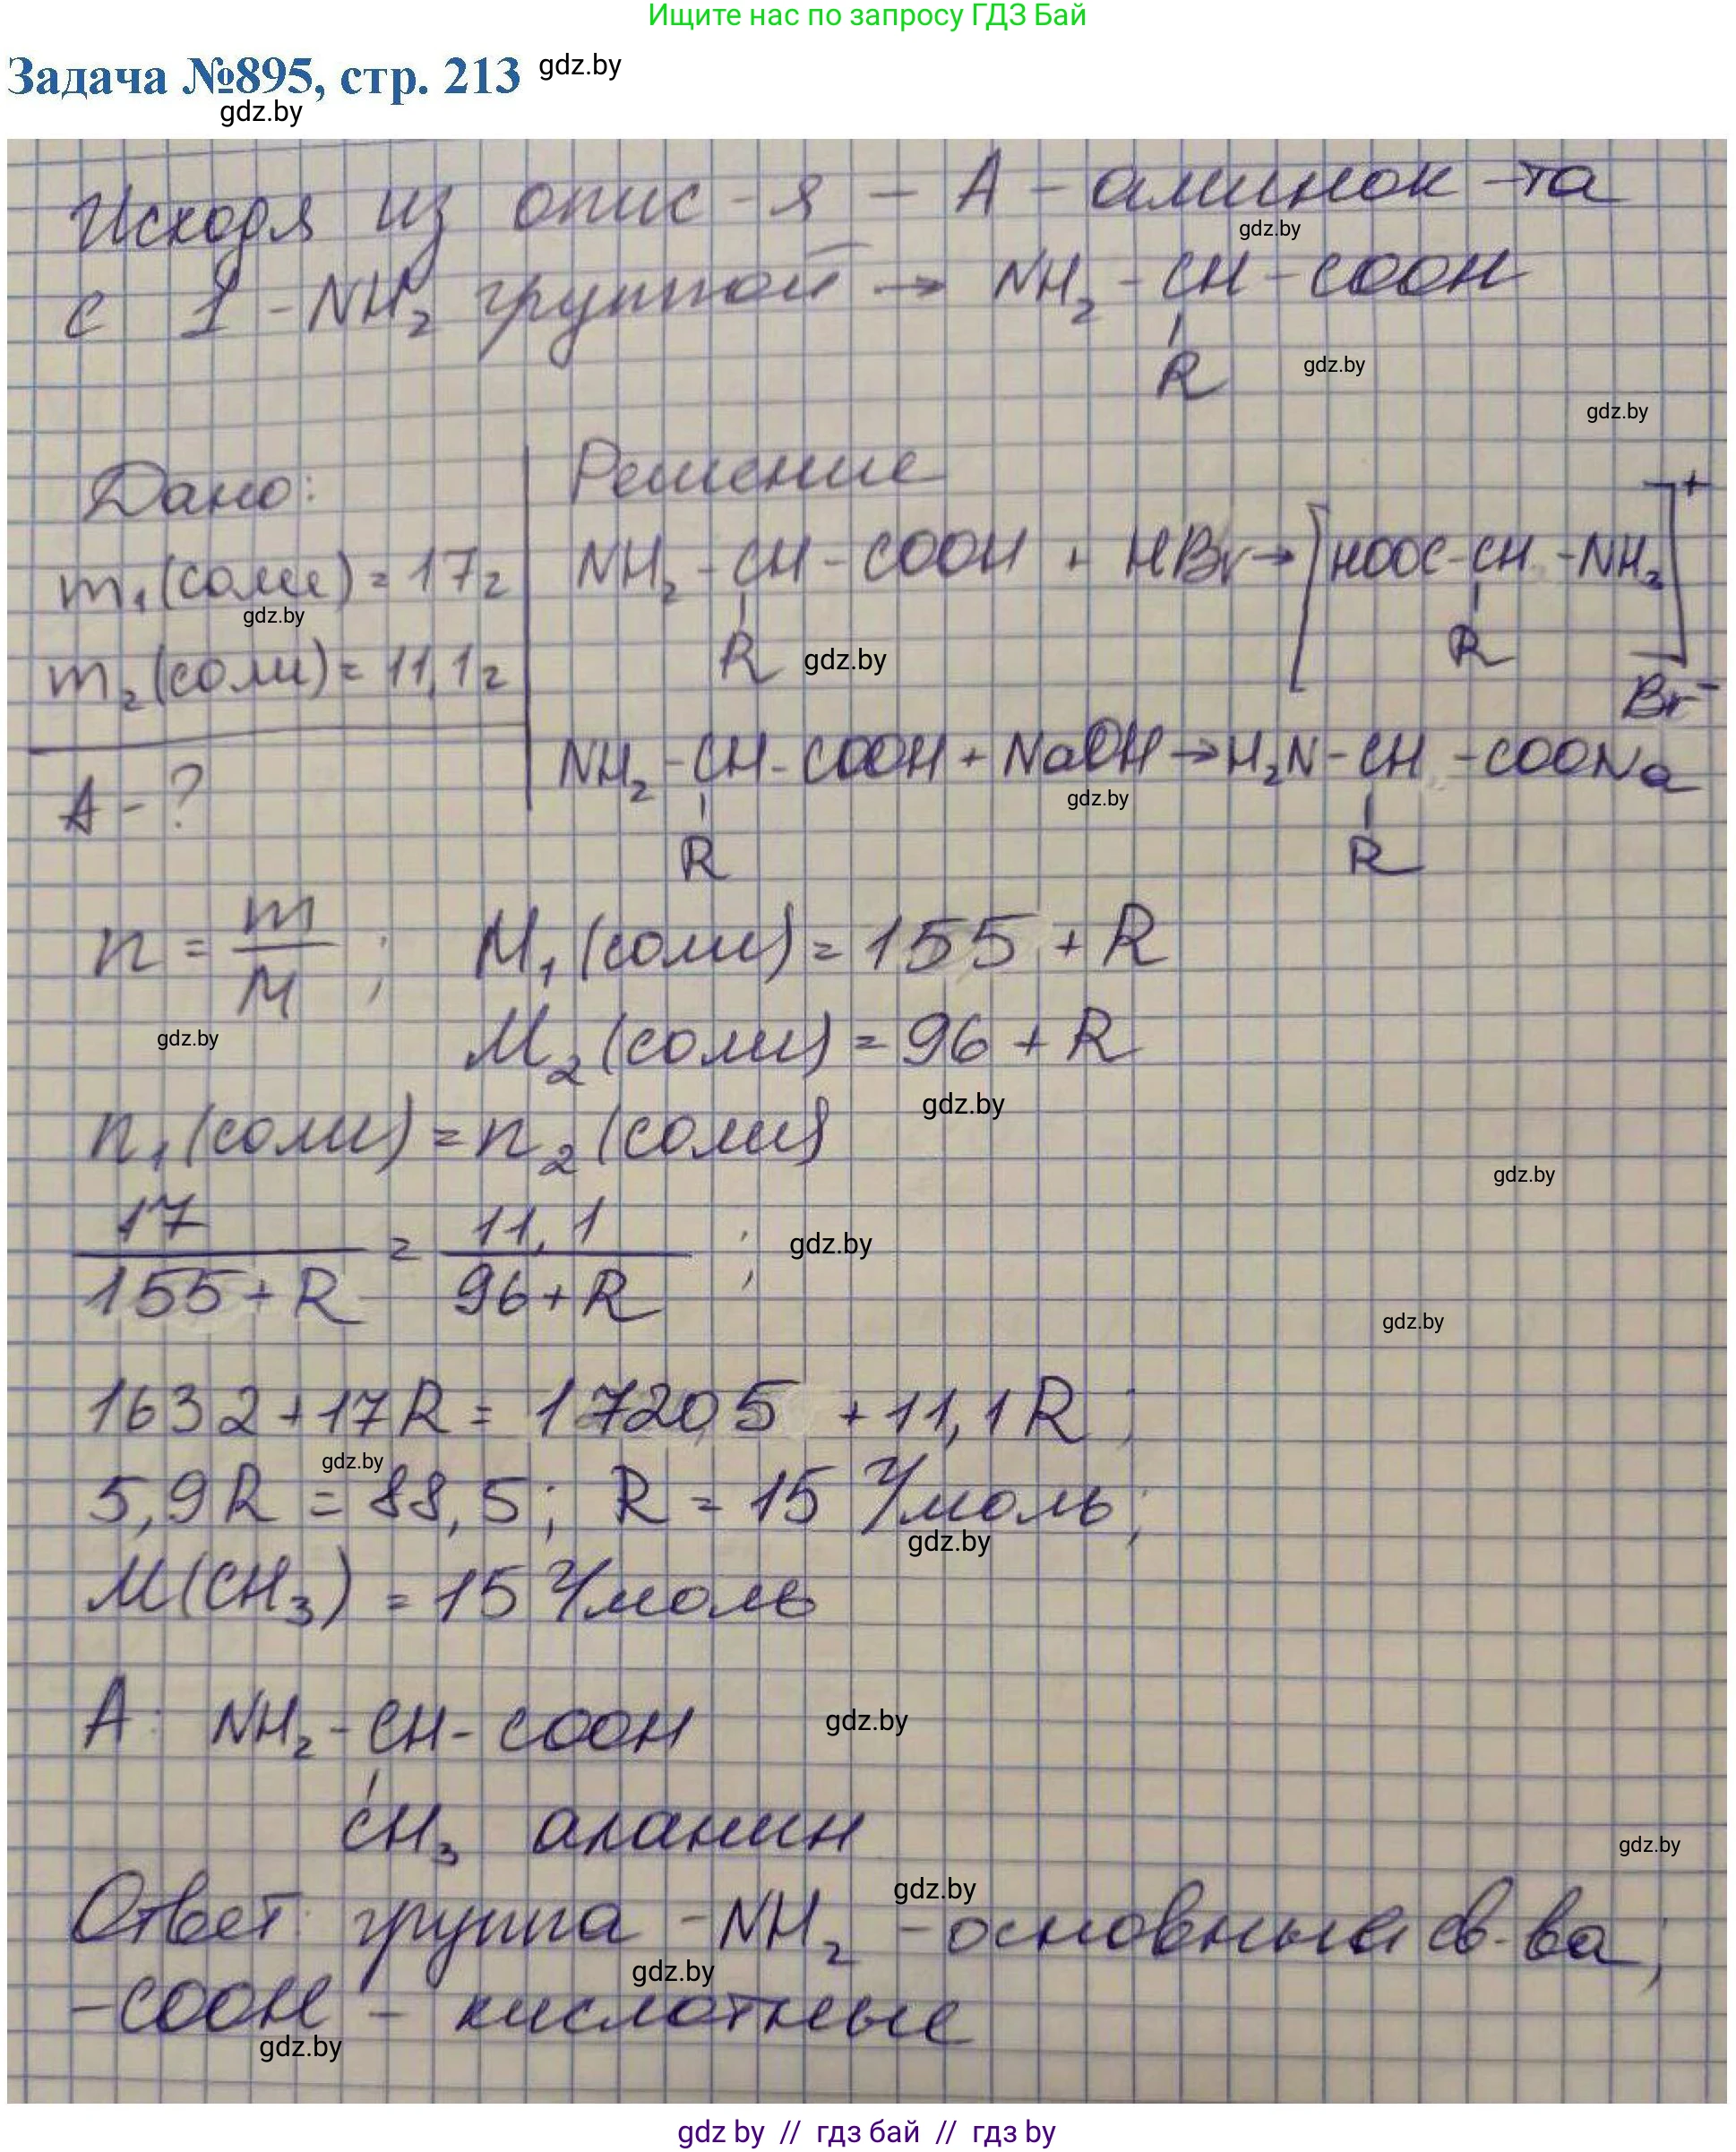 Ищите нас по запросу ГДЗ Бай
Задача №895, стр. 213 gdz.by
gdz.by
Исходя из опис-я – А – аминок-та
gdz.by
с 1 -NH₂ группой → NH₂ - CH - COOH
R
gdz.by
gdz.by
Дано:
Решение
m₁(соли) = 17г
NH₂ - CH - COOH + HBr → [HOOC - CH - NH₃]⁺
gdz.by
R
gdz.by
R
Br⁻
m₂(соли) = 11,1г
NH₂ - CH - COOH + NaOH → H₂N - CH - COONa
gdz.by
А - ?
R
R
n = m/M ; M₁(соли) = 155 + R
gdz.by
M₂(соли) = 96 + R
gdz.by
n₁(соли) = n₂(соли)
gdz.by
17/155+R = 11,1/96+R ;
gdz.by
gdz.by
1632 + 17R = 1720,5 + 11,1R ;
gdz.by
5,9R = 88,5; R = 15 г/моль;
gdz.by
M(CH₃) = 15 г/моль
А: NH₂ - CH - COOH
gdz.by
CH₃ аланин
gdz.by
gdz.by
Ответ: группа -NH₂ - основные св-ва;
gdz.by
-COOH - кислотные
gdz.by
gdz by // гдз бай // гдз by